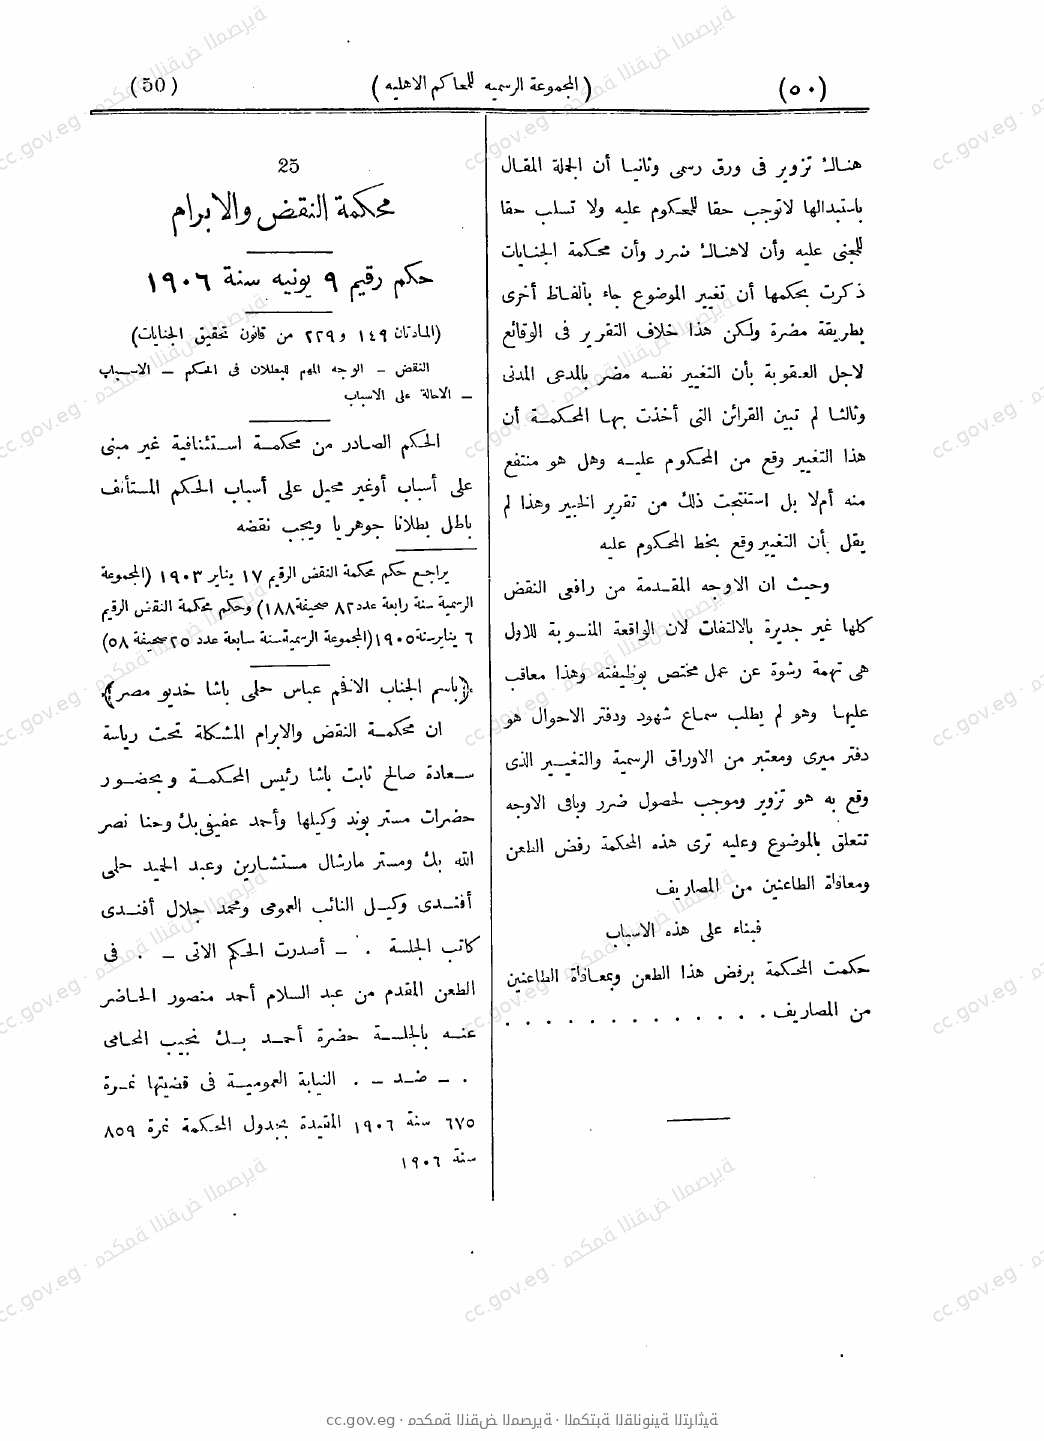 (٥٠) (المجموعة الرسميه للمحاكم الاهليه) (50)
هناك تزوير فى ورق رسمى وثانيا أن الجملة المقال
باستبدالها لاتوجب حقا للمحكوم عليه ولا تسلب حقا
للمجنى عليه وأن لاهناك ضرر وأن محكمة الجنايات
ذكرت بحكمها أن تغيير الموضوع جاء بألفاظ أخرى
بطريقة مضرة ولكن هذا خلاف التقرير فى الوقائع
لاجل العقوبة بأن التغيير نفسه مضر بالمدعى المدنى
وثالثا لم تبين القرائن التى أخذت بها المحكمة أن
هذا التغيير وقع من المحكوم عليه وهل هو منتفع
منه أم لا بل استنتجت ذلك من تقرير الخبير وهذا لم
يقل بأن التغيير وقع بخط المحكوم عليه
وحيث ان الاوجه المقدمة من رافعى النقض
كلها غير جديرة بالالتفات لان الواقعة المنسوبة للاول
هى تهمة رشوة عن عمل مختص بوظيفته وهذا معاقب
عليها وهو لم يطلب سماع شهود ودفتر الاحوال هو
دفتر ميرى ومعتبر من الاوراق الرسمية والتغيير الذى
وقع به هو تزوير وموجب لحصول ضرر وباقى الاوجه
تتعلق بالموضوع وعليه ترى هذه المحكمة رفض الطعن
ومعافاة الطاعنين من المصاريف
فبناء على هذه الاسباب
حكمت المحكمة برفض هذا الطعن وبمعافاة الطاعنين
من المصاريف . . . . . . . . . . . . .
25
محكمة النقض والابرام
حكم رقيم ٩ يونيه سنة ١٩٠٦
(المادتان ١٤٩ و٢٢٩ من قانون تحقيق الجنايات)
النقض – الوجه المهم للبطلان فى الحكم – الاسباب
– الاحالة على الاسباب
الحكم الصادر من محكمة استئنافية غير مبنى
على أسباب أوغير محيل على أسباب الحكم المستأنف
باطل بطلانا جوهريا ويجب نقضه
يراجع حكم محكمة النقض الرقيم ١٧ يناير ١٩٠٣ (المجموعة
الرسمية سنة رابعة عدد ٨٢ صحيفة ١٨٨) وحكم محكمة النقض الرقيم
٦ يناير سنة ١٩٠٥ (المجموعة الرسمية سنة سابعة عدد ٢٥ صحيفة ٥٨)
﴿باسم الجناب الافخم عباس حلمى باشا خديو مصر﴾
ان محكمة النقض والابرام المشكلة تحت رياسة
سعادة صالح ثابت باشا رئيس المحكمة وبحضور
حضرات مستر بوند وكيلها وأحمد عفيفى بك وحنا نصر
الله بك ومستر مارشال مستشارين وعبد الحميد حلمى
أفندى وكيل النائب العمومى ومحمد جلال أفندى
كاتب الجلسة . – أصدرت الحكم الاتى – . فى
الطعن المقدم من عبد السلام أحمد منصور الحاضر
عنه بالجلسة حضرة أحمد بك نجيب المحامى
. – ضد – . النيابة العمومية فى قضيتها نمرة
٦٧٥ سنة ١٩٠٦ المقيدة بجدول المحكمة نمرة ٨٥٩
سنة ١٩٠٦
cc.gov.eg · محكمة النقض المصرية · المكتبة القانونية التراثية